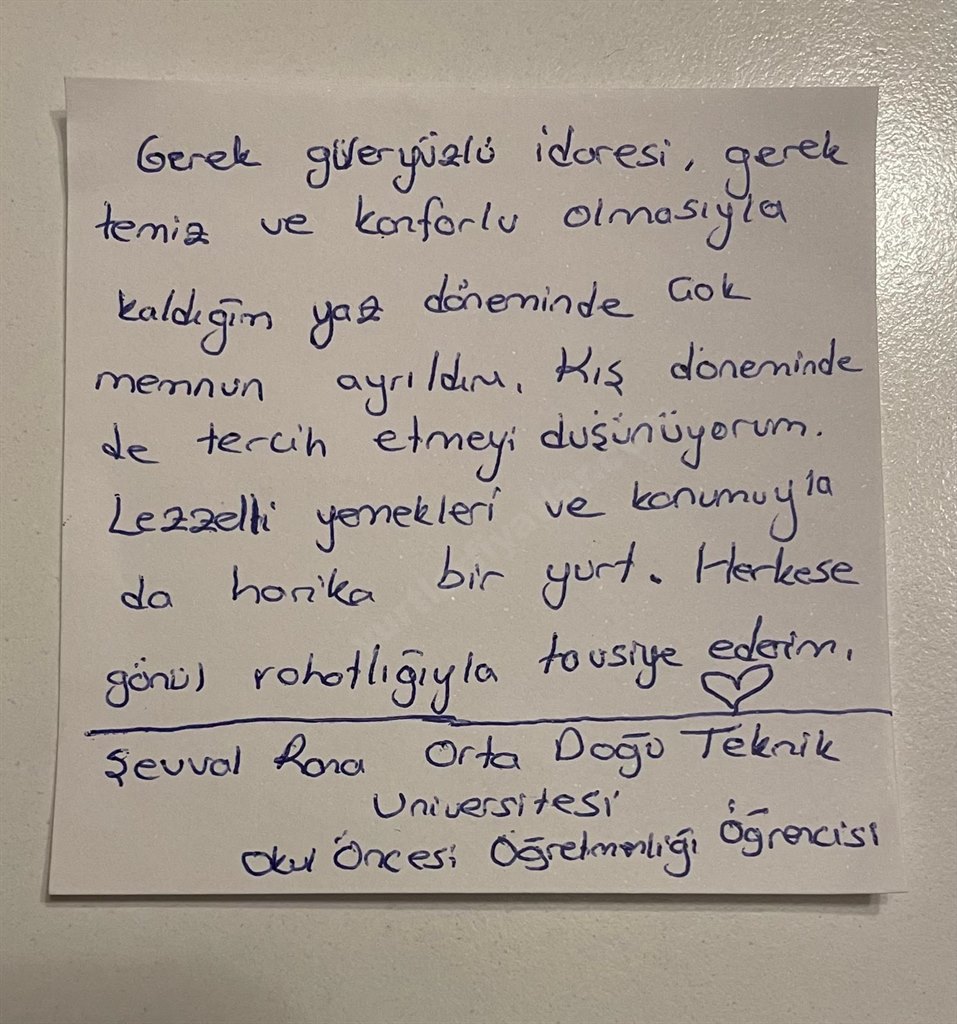 Gerek güleryüzlü idaresi, gerek
temiz ve konforlu olmasıyla
kaldığım yaz döneminde çok
memnun ayrıldım. Kış döneminde
de tercih etmeyi düşünüyorum.
Lezzetli yemekleri ve konumuyla
da harika bir yurt. Herkese
gönül rahatlığıyla tavsiye ederim.
Şevval Rana Orta Doğu Teknik
Üniversitesi
Okul Öncesi Öğretmenliği Öğrencisi